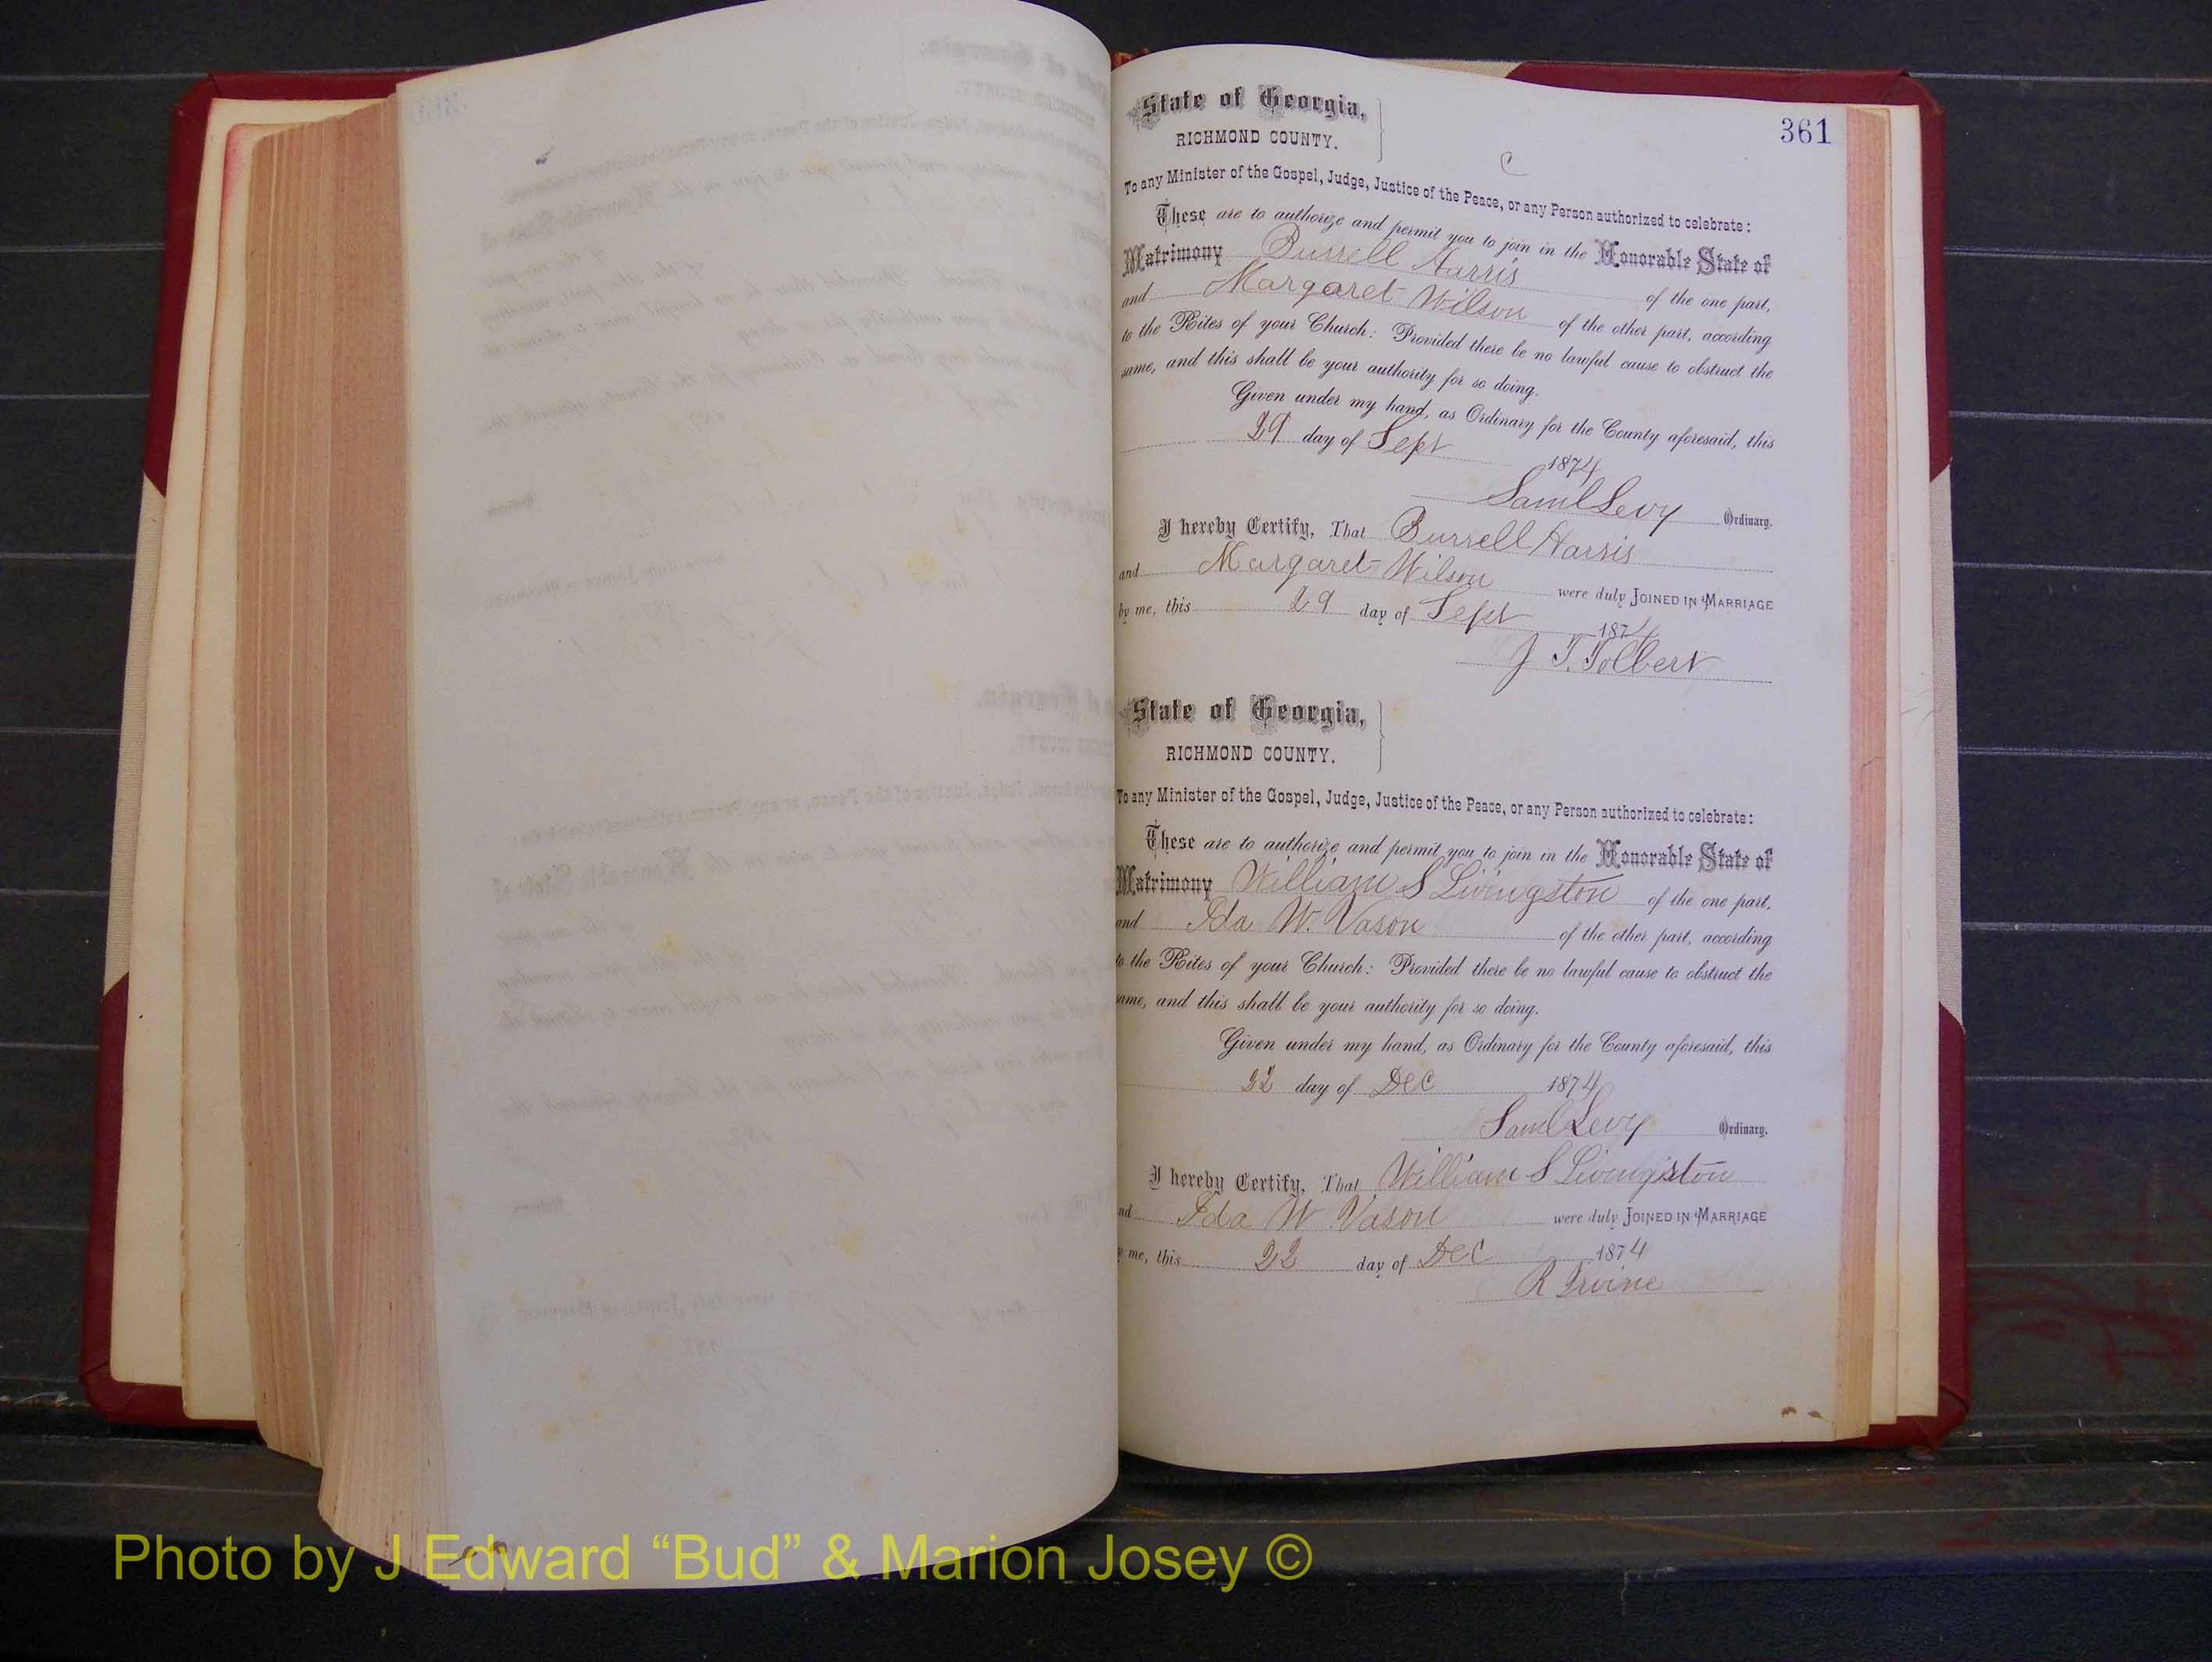 361
State of Georgia,
RICHMOND COUNTY.
C
To any Minister of the Gospel, Judge, Justice of the Peace, or any Person authorized to celebrate:
These are to authorize and permit you to join in the Honorable State of
Matrimony Burrell Harris of the one part,
and Margaret Wilson of the other part, according
to the Rites of your Church: Provided there be no lawful cause to obstruct the
same, and this shall be your authority for so doing.
Given under my hand, as Ordinary for the County aforesaid, this
29 day of Sept 1874
Saml Levy Ordinary.
I hereby Certify, That Burrell Harris
and Margaret Wilson were duly JOINED IN MARRIAGE
by me, this 29 day of Sept 1874
J T. Tolbert
State of Georgia,
RICHMOND COUNTY.
To any Minister of the Gospel, Judge, Justice of the Peace, or any Person authorized to celebrate:
These are to authorize and permit you to join in the Honorable State of
Matrimony William S Livingston of the one part,
and Ida W. Vason of the other part, according
to the Rites of your Church: Provided there be no lawful cause to obstruct the
same, and this shall be your authority for so doing.
Given under my hand, as Ordinary for the County aforesaid, this
22 day of Dec 1874
Saml Levy Ordinary.
I hereby Certify, That William S Livingston
nd Ida W Vason were duly JOINED IN MARRIAGE
me, this 22 day of Dec 1874
R Irvine
Photo by J Edward “Bud” & Marion Josey ©